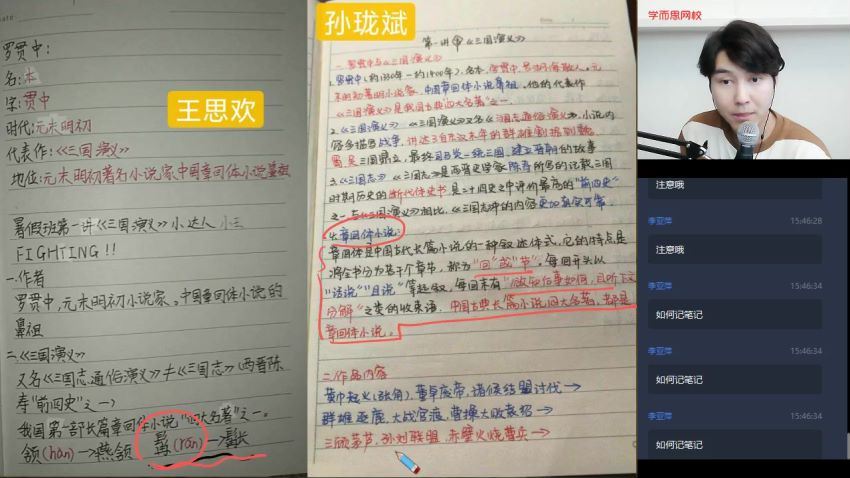 罗贯中:
名:本
字:贯中
时代:元末明初
代表作:《三国演义》
地位:元末明初著名小说家,中国章回体小说鼻祖
暑假班第一讲《三国演义》小达人
FIGHTING!!
一.作者
罗贯中,元末明初小说家。中国章回体小说的
鼻祖
二.《三国演义》
又名《三国志通俗演义》≠《三国志》(西晋陈
寿"前四史"之一)
我国第一部长篇章回体小说"四大名著"之一。
颔(hàn)→燕颔 髯(rán)→髯长
王思欢
孙珑斌
第一讲 《三国演义》
一.罗贯中与《三国演义》
1.罗贯中(约1330年—约1400年),名本,字贯中,号湖海散人。元
末明初著名小说家,中国章回体小说鼻祖,他的代表作
《三国演义》是我国古典四大名著之一。
2.《三国演义》 《三国演义》又名《三国志通俗演义》,小说内
容多描写战争,讲述了自东汉末年的群雄割据到魏
蜀,吴三国鼎立,最终司马炎一统三国,建立晋朝的故事
3.《三国志》 《三国志》是西晋史学家陈寿所写的记载三国
时期历史的断代体史书是二十四史之中评价最高的"前四史"
之一 与《三国演义》相比,《三国志》中的内容更加真实可靠.
4.章回体小说:
章回体是中国古代长篇小说的一种叙述体式,它的特点是
将全书分为若干个章节,称为"回"或"节",每回开头以
"话说""且说"等起叙,每回末有"欲知后事如何,且听下文
分解"之类的收束语.中国古典长篇小说四大名著,都是
章回体小说。
二.作品内容
黄巾起义(张角),董卓废帝,诸侯结盟讨伐→
群雄逐鹿,大战官渡,曹操大败袁绍→
三顾茅芦,孙刘联盟,赤壁火烧曹兵→
学而思网校
注意哦
李亚萍 15:46:28
注意哦
李亚萍 15:46:34
如何记笔记
李亚萍 15:46:34
如何记笔记
李亚萍 15:46:34
如何记笔记